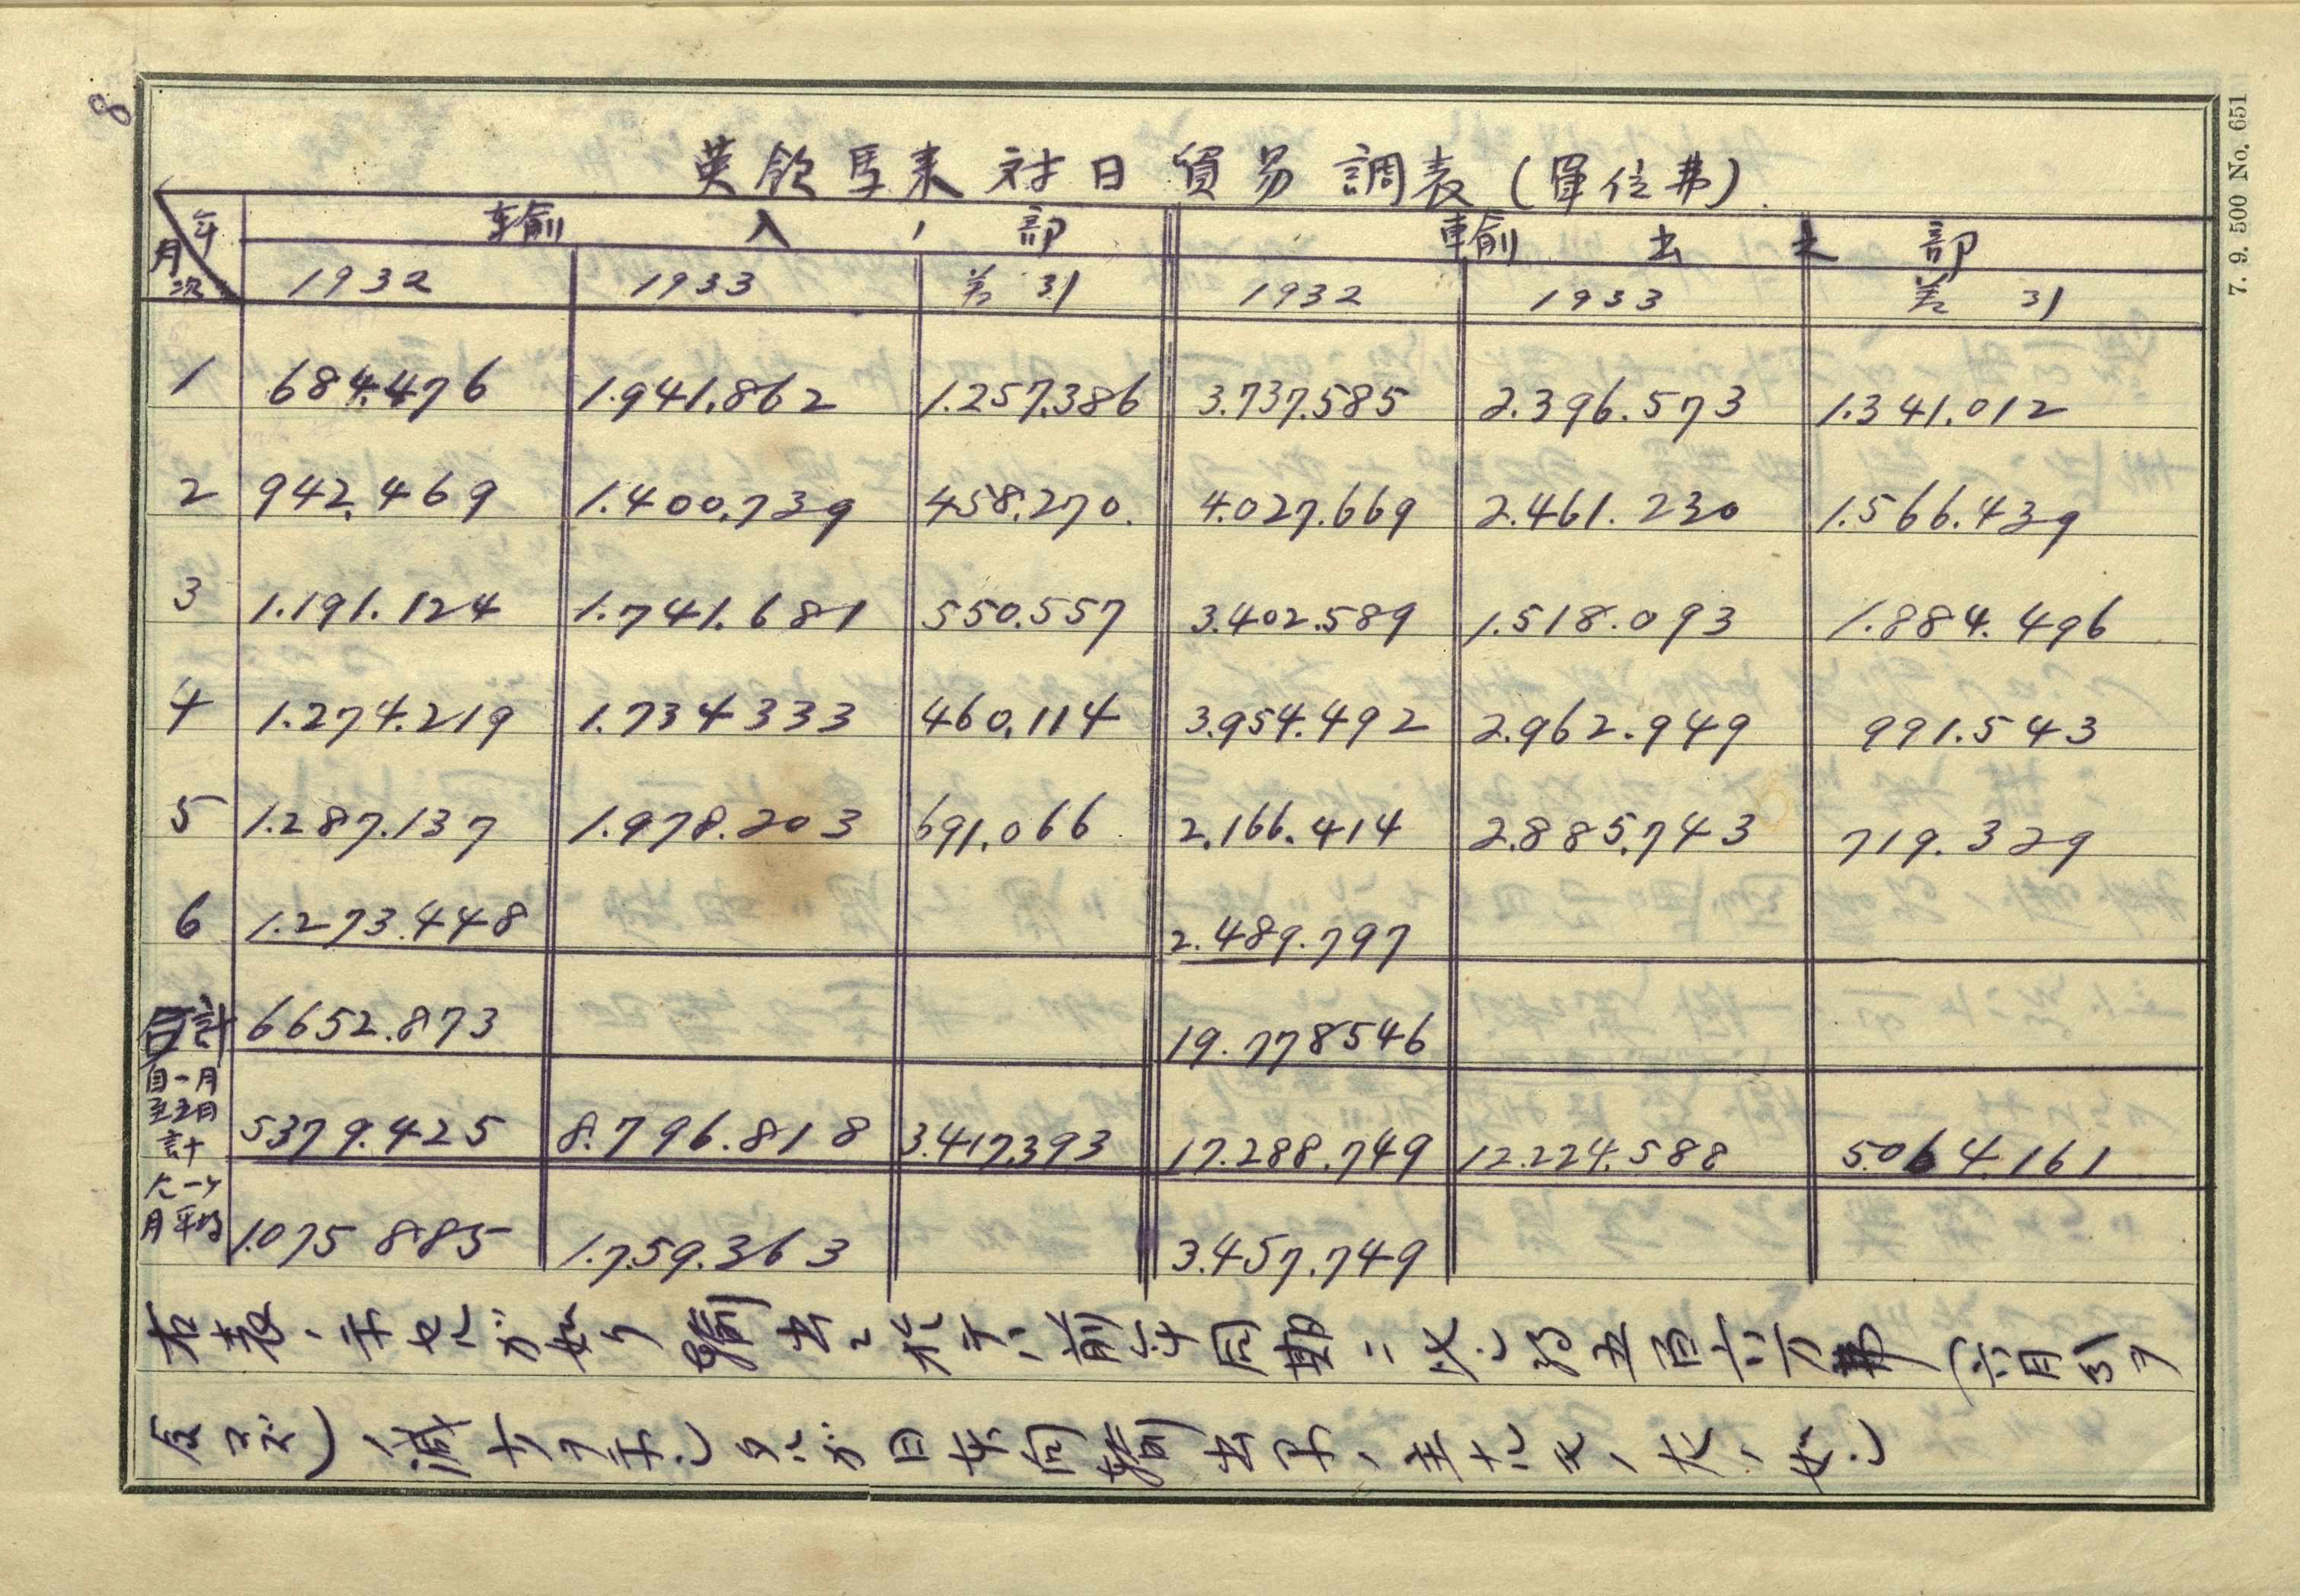 8
7. 9. 500 No. 651
英領馬来対日貿易調表(單位弗)
年 輸入ノ部 輸出之部
月次 1932 1933 差引 1932 1933 差引
1 684.476 1.941.862 1.257.386 3.737.585 2.396.573 1.341.012
2 942.469 1.400.739 458.270. 4.027.669 2.461.230 1.566.439
3 1.191.124 1.741.681 550.557 3.402.589 1.518.093 1.884.496
4 1.274.219 1.734333 460.114 3.954.492 2.962.949 991.543
5 1.287.137 1.978.203 691.066 2.166.414 2.885.743 719.329
6 1.273.448 2.489.797
計 6652.873 19.778546
自一月至五月計 5379.425 8.796.818 3.417.393 17.288.749 12.224.588 5.064.161
一ヶ月平均 1.075885 1.759.363 3.457.749
右表ノ示セルガ如ク輸出ニ於テハ前年同期ニ比シ約五百六万弗(六月引ヲ
含マズ)ノ減少ヲ示シ
日本向輸出